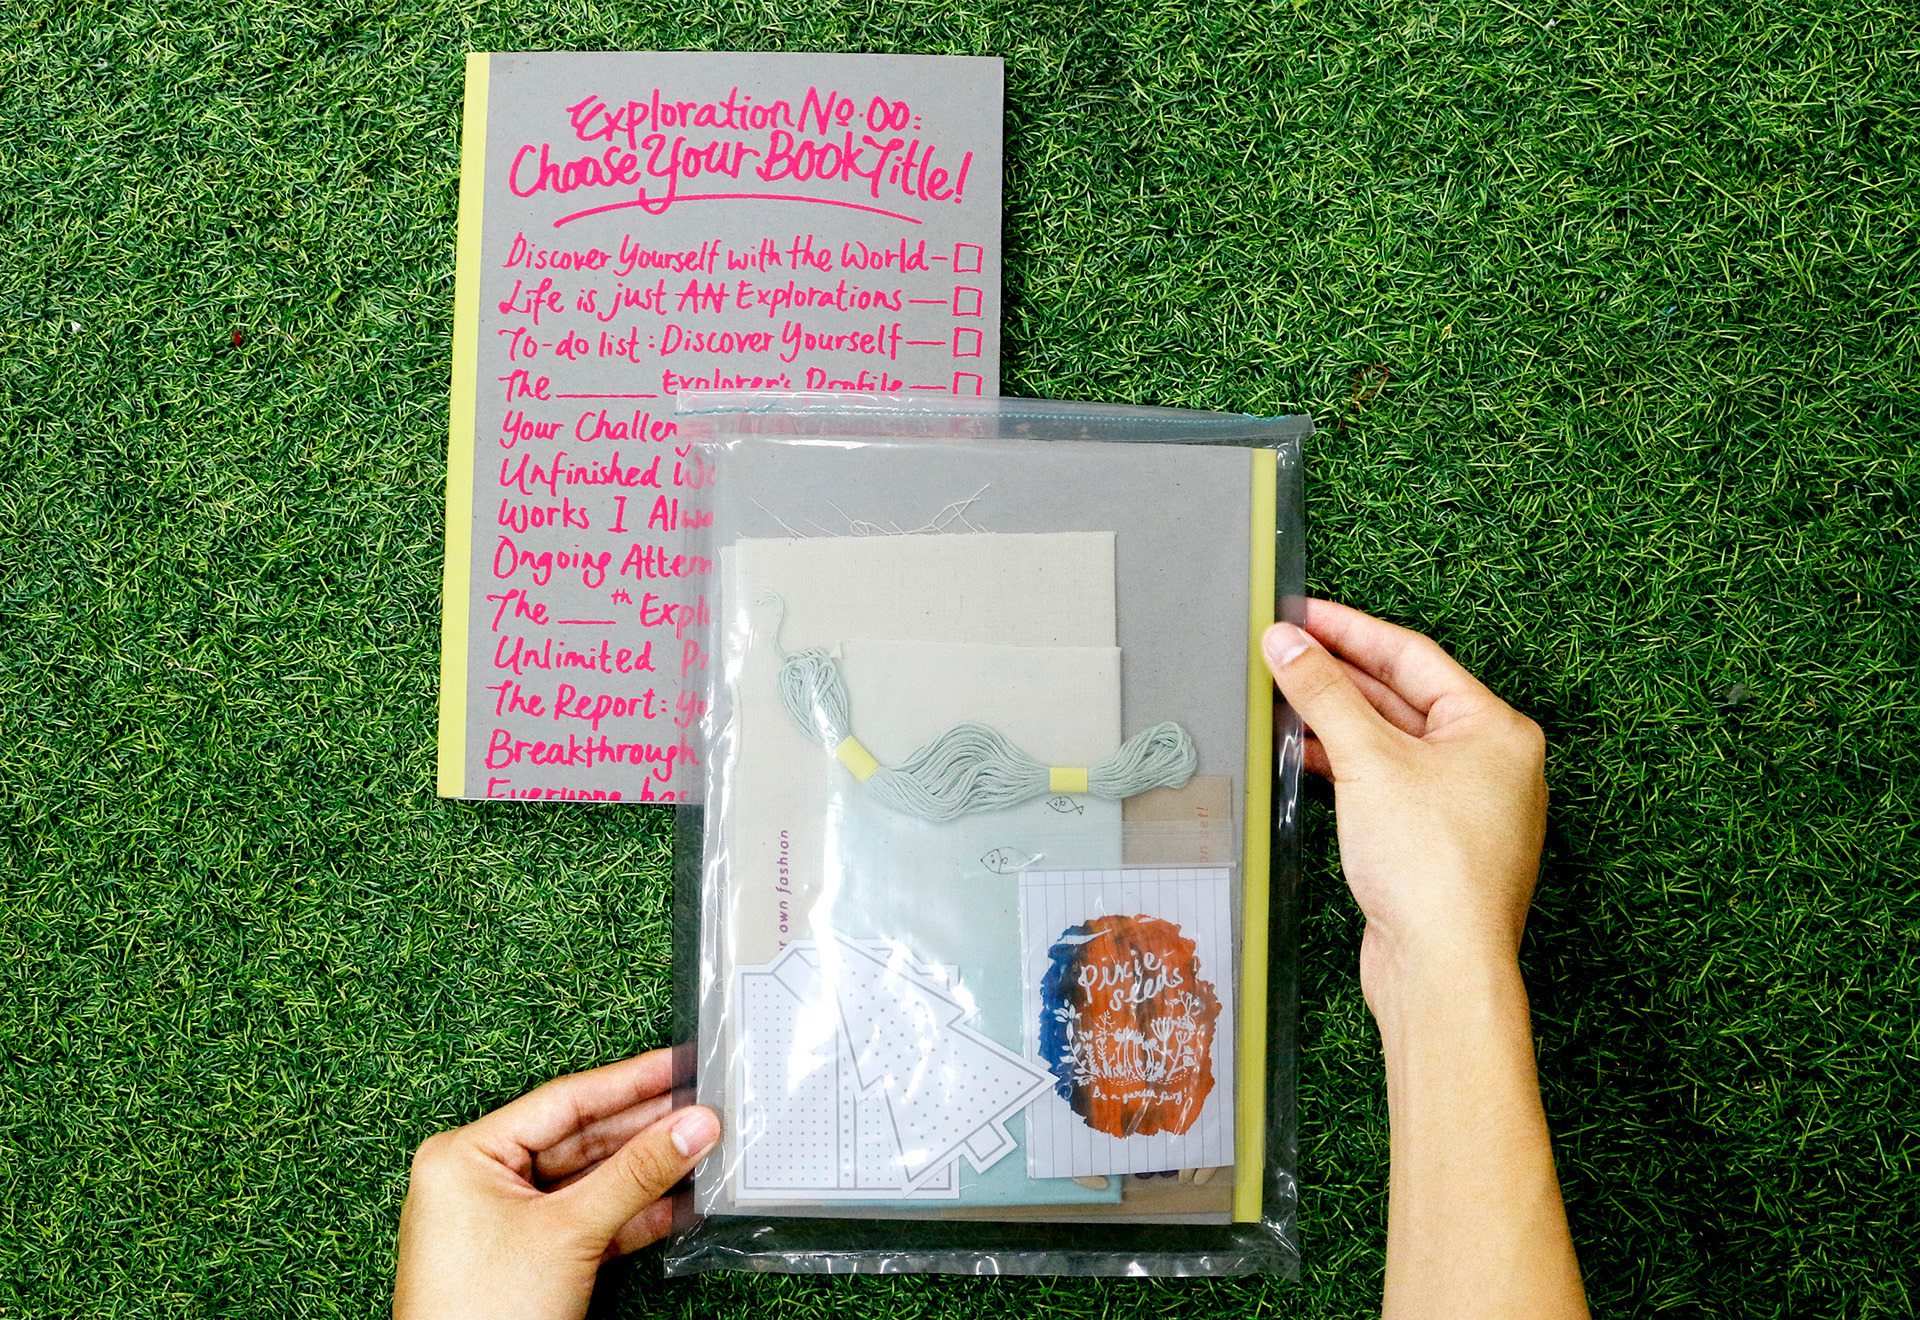 Exploration No. 00:
Choose Your Book Title!
Discover Yourself with the World—
Life is just AN Explorations—
To-do list: Discover Yourself—
The ______ Explorer's Profile—
Your Challen
Unfinished
Works I
Ongoing
The ___th
Unlimited
The Report:
Breakthrough
Everyone has
own fashion
pixie
seeds
Be a garden fairy!